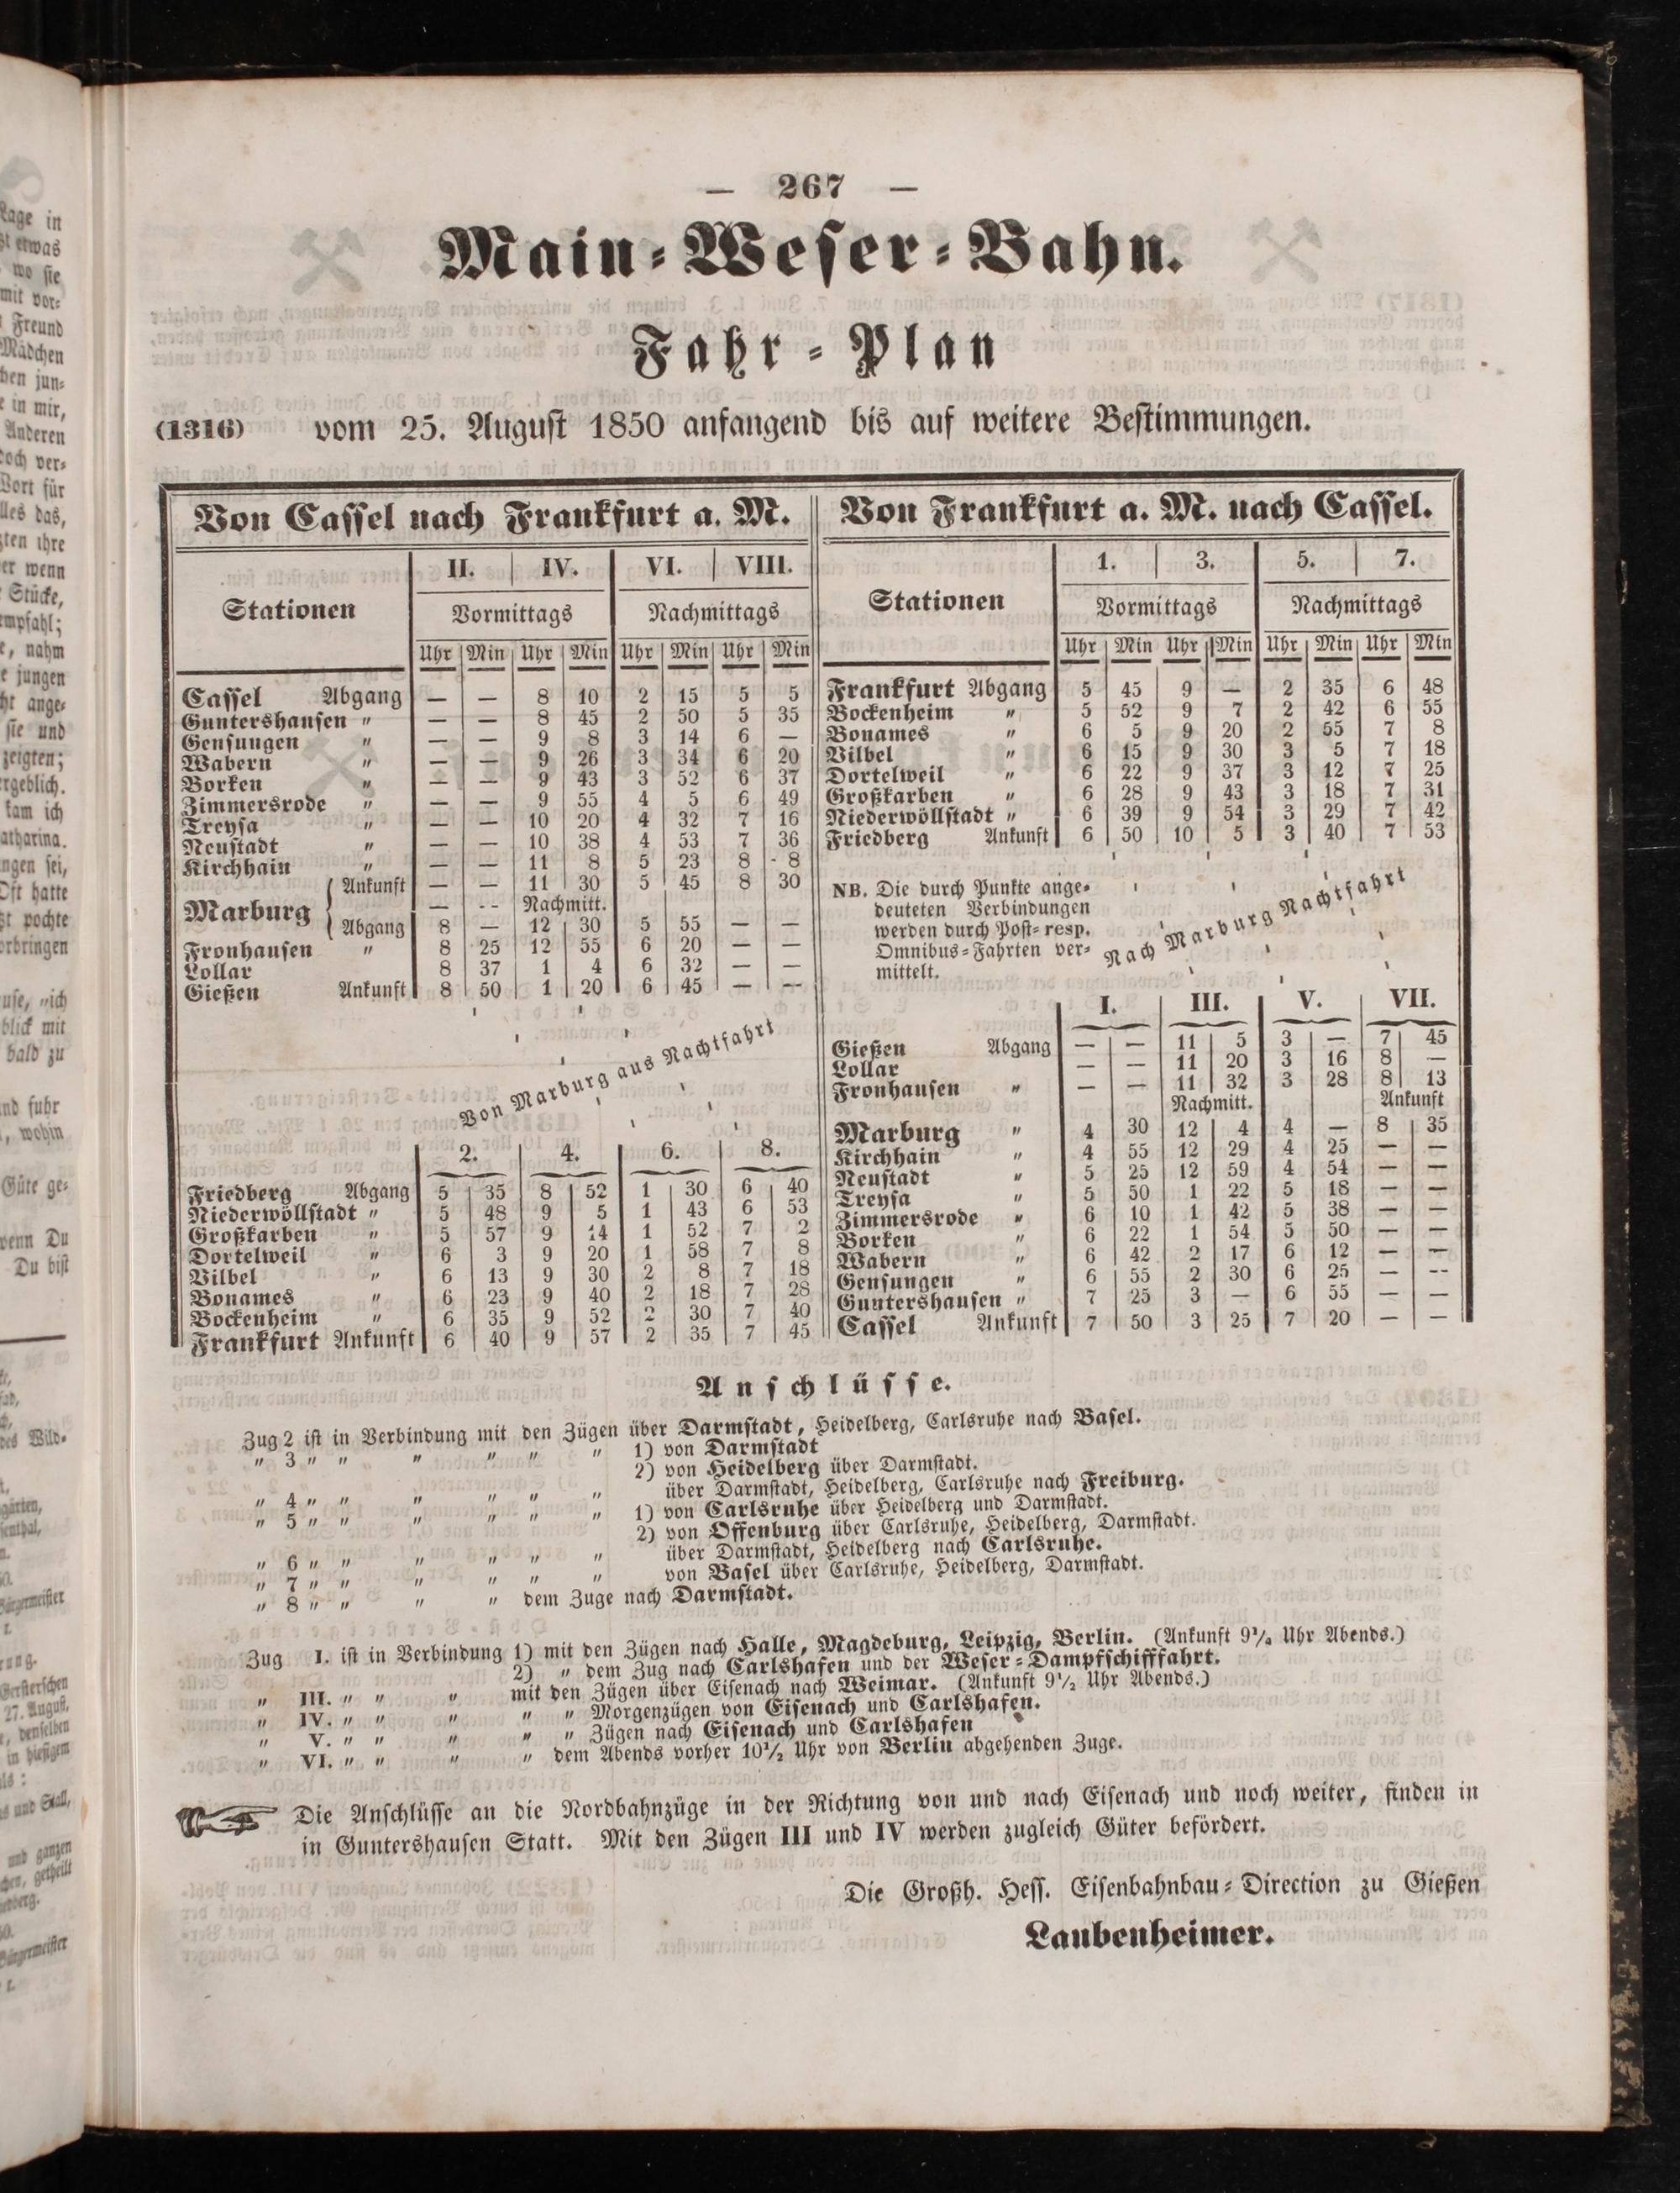 — 267 —
Main-Weser-Bahn.
Fahr-Plan
(1316) vom 25. August 1850 anfangend bis auf weitere Bestimmungen.
Von Cassel nach Frankfurt a. M.
II. IV. VI. VIII.
Stationen Vormittags Nachmittags
Uhr Min Uhr Min Uhr Min Uhr Min
Cassel Abgang — — 8 10 2 15 5 5
Guntershausen " — — 8 45 2 50 5 35
Gensungen " — — 9 8 3 14 6 —
Wabern " — — 9 26 3 34 6 20
Borken " — — 9 43 3 52 6 37
Zimmersrode " — — 9 55 4 5 6 49
Treysa " — — 10 20 4 32 7 16
Neustadt " — — 10 38 4 53 7 36
Kirchhain " — — 11 8 5 23 8 8
Marburg Ankunft — — 11 30 5 45 8 30
— -- Nachmitt.
Abgang 8 — 12 30 5 55 — —
Fronhausen " 8 25 12 55 6 20 — —
Lollar 8 37 1 4 6 32 — —
Gießen Ankunft 8 50 1 20 6 45 — --
Von Marburg aus Nachtfahrt
2. 4. 6. 8.
Friedberg Abgang 5 35 8 52 1 30 6 40
Niederwöllstadt " 5 48 9 5 1 43 6 53
Großkarben " 5 57 9 14 1 52 7 2
Dortelweil " 6 3 9 20 1 58 7 8
Vilbel " 6 13 9 30 2 8 7 18
Bonames " 6 23 9 40 2 18 7 28
Bockenheim " 6 35 9 52 2 30 7 40
Frankfurt Ankunft 6 40 9 57 2 35 7 45
Von Frankfurt a. M. nach Cassel.
1. 3. 5. 7.
Stationen Vormittags Nachmittags
Uhr Min Uhr Min Uhr Min Uhr Min
Frankfurt Abgang 5 45 9 — 2 35 6 48
Bockenheim " 5 52 9 7 2 42 6 55
Bonames " 6 5 9 20 2 55 7 8
Vilbel " 6 15 9 30 3 5 7 18
Dortelweil " 6 22 9 37 3 12 7 25
Großkarben " 6 28 9 43 3 18 7 31
Niederwöllstadt " 6 39 9 54 3 29 7 42
Friedberg Ankunft 6 50 10 5 3 40 7 53
NB. Die durch Punkte ange-
deuteten Verbindungen
werden durch Post- resp.
Omnibus-Fahrten ver-
mittelt.
Nach Marburg Nachtfahrt
I. III. V. VII.
Gießen Abgang — — 11 5 3 — 7 45
Lollar — — 11 20 3 16 8 —
Fronhausen " — — 11 32 3 28 8 13
Nachmitt. Ankunft
Marburg " 4 30 12 4 4 — 8 35
Kirchhain " 4 55 12 29 4 25 — —
Neustadt " 5 25 12 59 4 54 — —
Treysa " 5 50 1 22 5 18 — —
Zimmersrode " 6 10 1 42 5 38 — —
Borken " 6 22 1 54 5 50 — —
Wabern " 6 42 2 17 6 12 — —
Gensungen " 6 55 2 30 6 25 — --
Guntershausen " 7 25 3 — 6 55 — —
Cassel Ankunft 7 50 3 25 7 20 — —
Anschlüsse.
Zug 2 ist in Verbindung mit den Zügen über Darmstadt, Heidelberg, Carlsruhe nach Basel.
" 3 " " " " " " 1) von Darmstadt
2) von Heidelberg über Darmstadt.
" 4 " " " " " " über Darmstadt, Heidelberg, Carlsruhe nach Freiburg.
" 5 " " " " " " 1) von Carlsruhe über Heidelberg und Darmstadt.
2) von Offenburg über Carlsruhe, Heidelberg, Darmstadt.
" 6 " " " " " " über Darmstadt, Heidelberg nach Carlsruhe.
" 7 " " " " " " von Basel über Carlsruhe, Heidelberg, Darmstadt.
" 8 " " " " dem Zuge nach Darmstadt.
Zug I. ist in Verbindung 1) mit den Zügen nach Halle, Magdeburg, Leipzig, Berlin. (Ankunft Uhr Abends.)
2) " dem Zug nach Carlshafen und der Weser-Dampfschifffahrt.
" III. " " " mit den Zügen über Eisenach nach Weimar. (Ankunft 9½ Uhr Abends.)
" IV. " " " " " Morgenzügen von Eisenach und Carlshafen.
" V. " " " " " Zügen nach Eisenach und Carlshafen
" VI. " " " " dem Abends vorher 10½ Uhr von Berlin abgehenden Zuge.
Die Anschlüsse an die Nordbahnzüge in der Richtung von und nach Eisenach und noch weiter, finden in
in Guntershausen Statt. Mit den Zügen III und IV werden zugleich Güter befördert.
Die Großh. Hess. Eisenbahnbau-Direction zu Gießen
Laubenheimer.